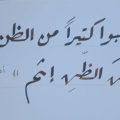 بوا كثيراً من الظن
الظنِّ إثم